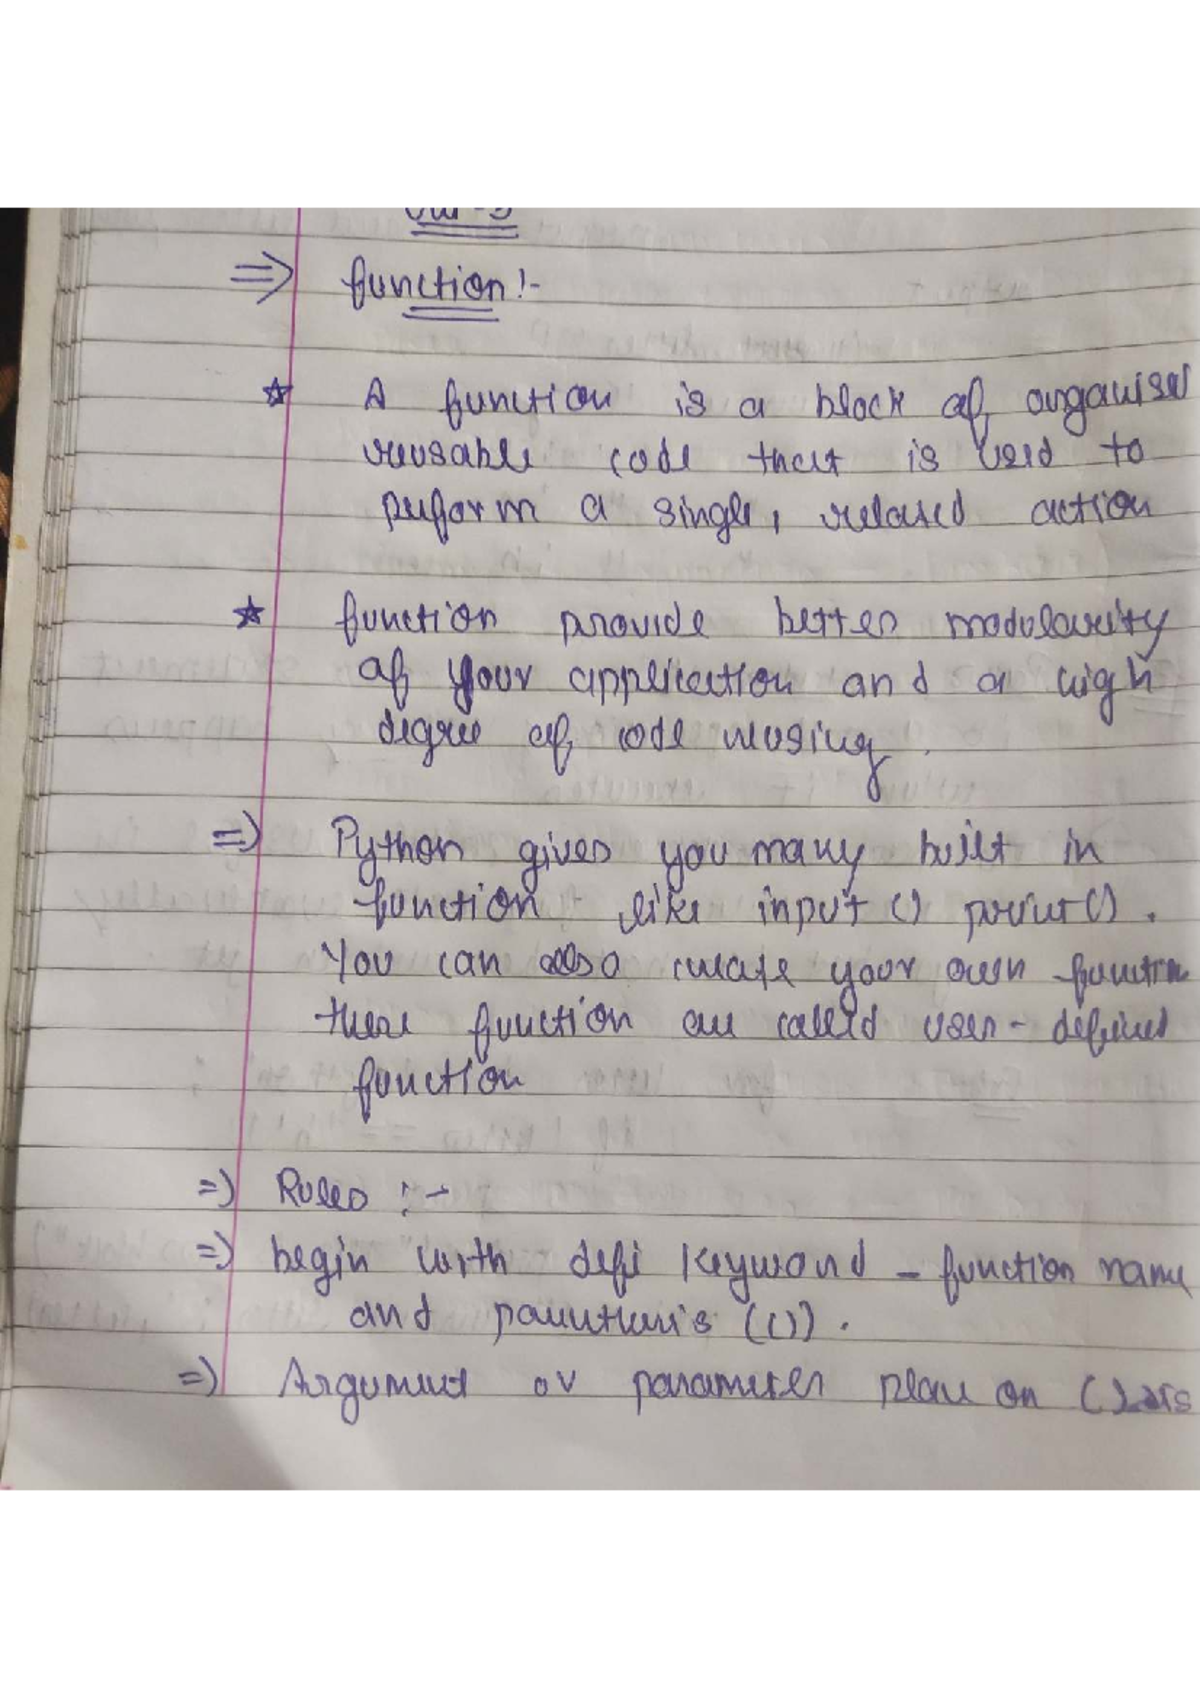 ⇒ function :-
☆ A function is a block of organised
reusable code that is used to
perform a single, related action
☆ function provide better modularity
of your application and a high
degree of code reusing.
⇒ Python gives you many built in
function like input () print().
You can also create your own function
these function are called user-defined
function
⇒ Rules :-
⇒ begin with keyword - function name
and parenthesis (()).
⇒ Argument or parameter place on ()